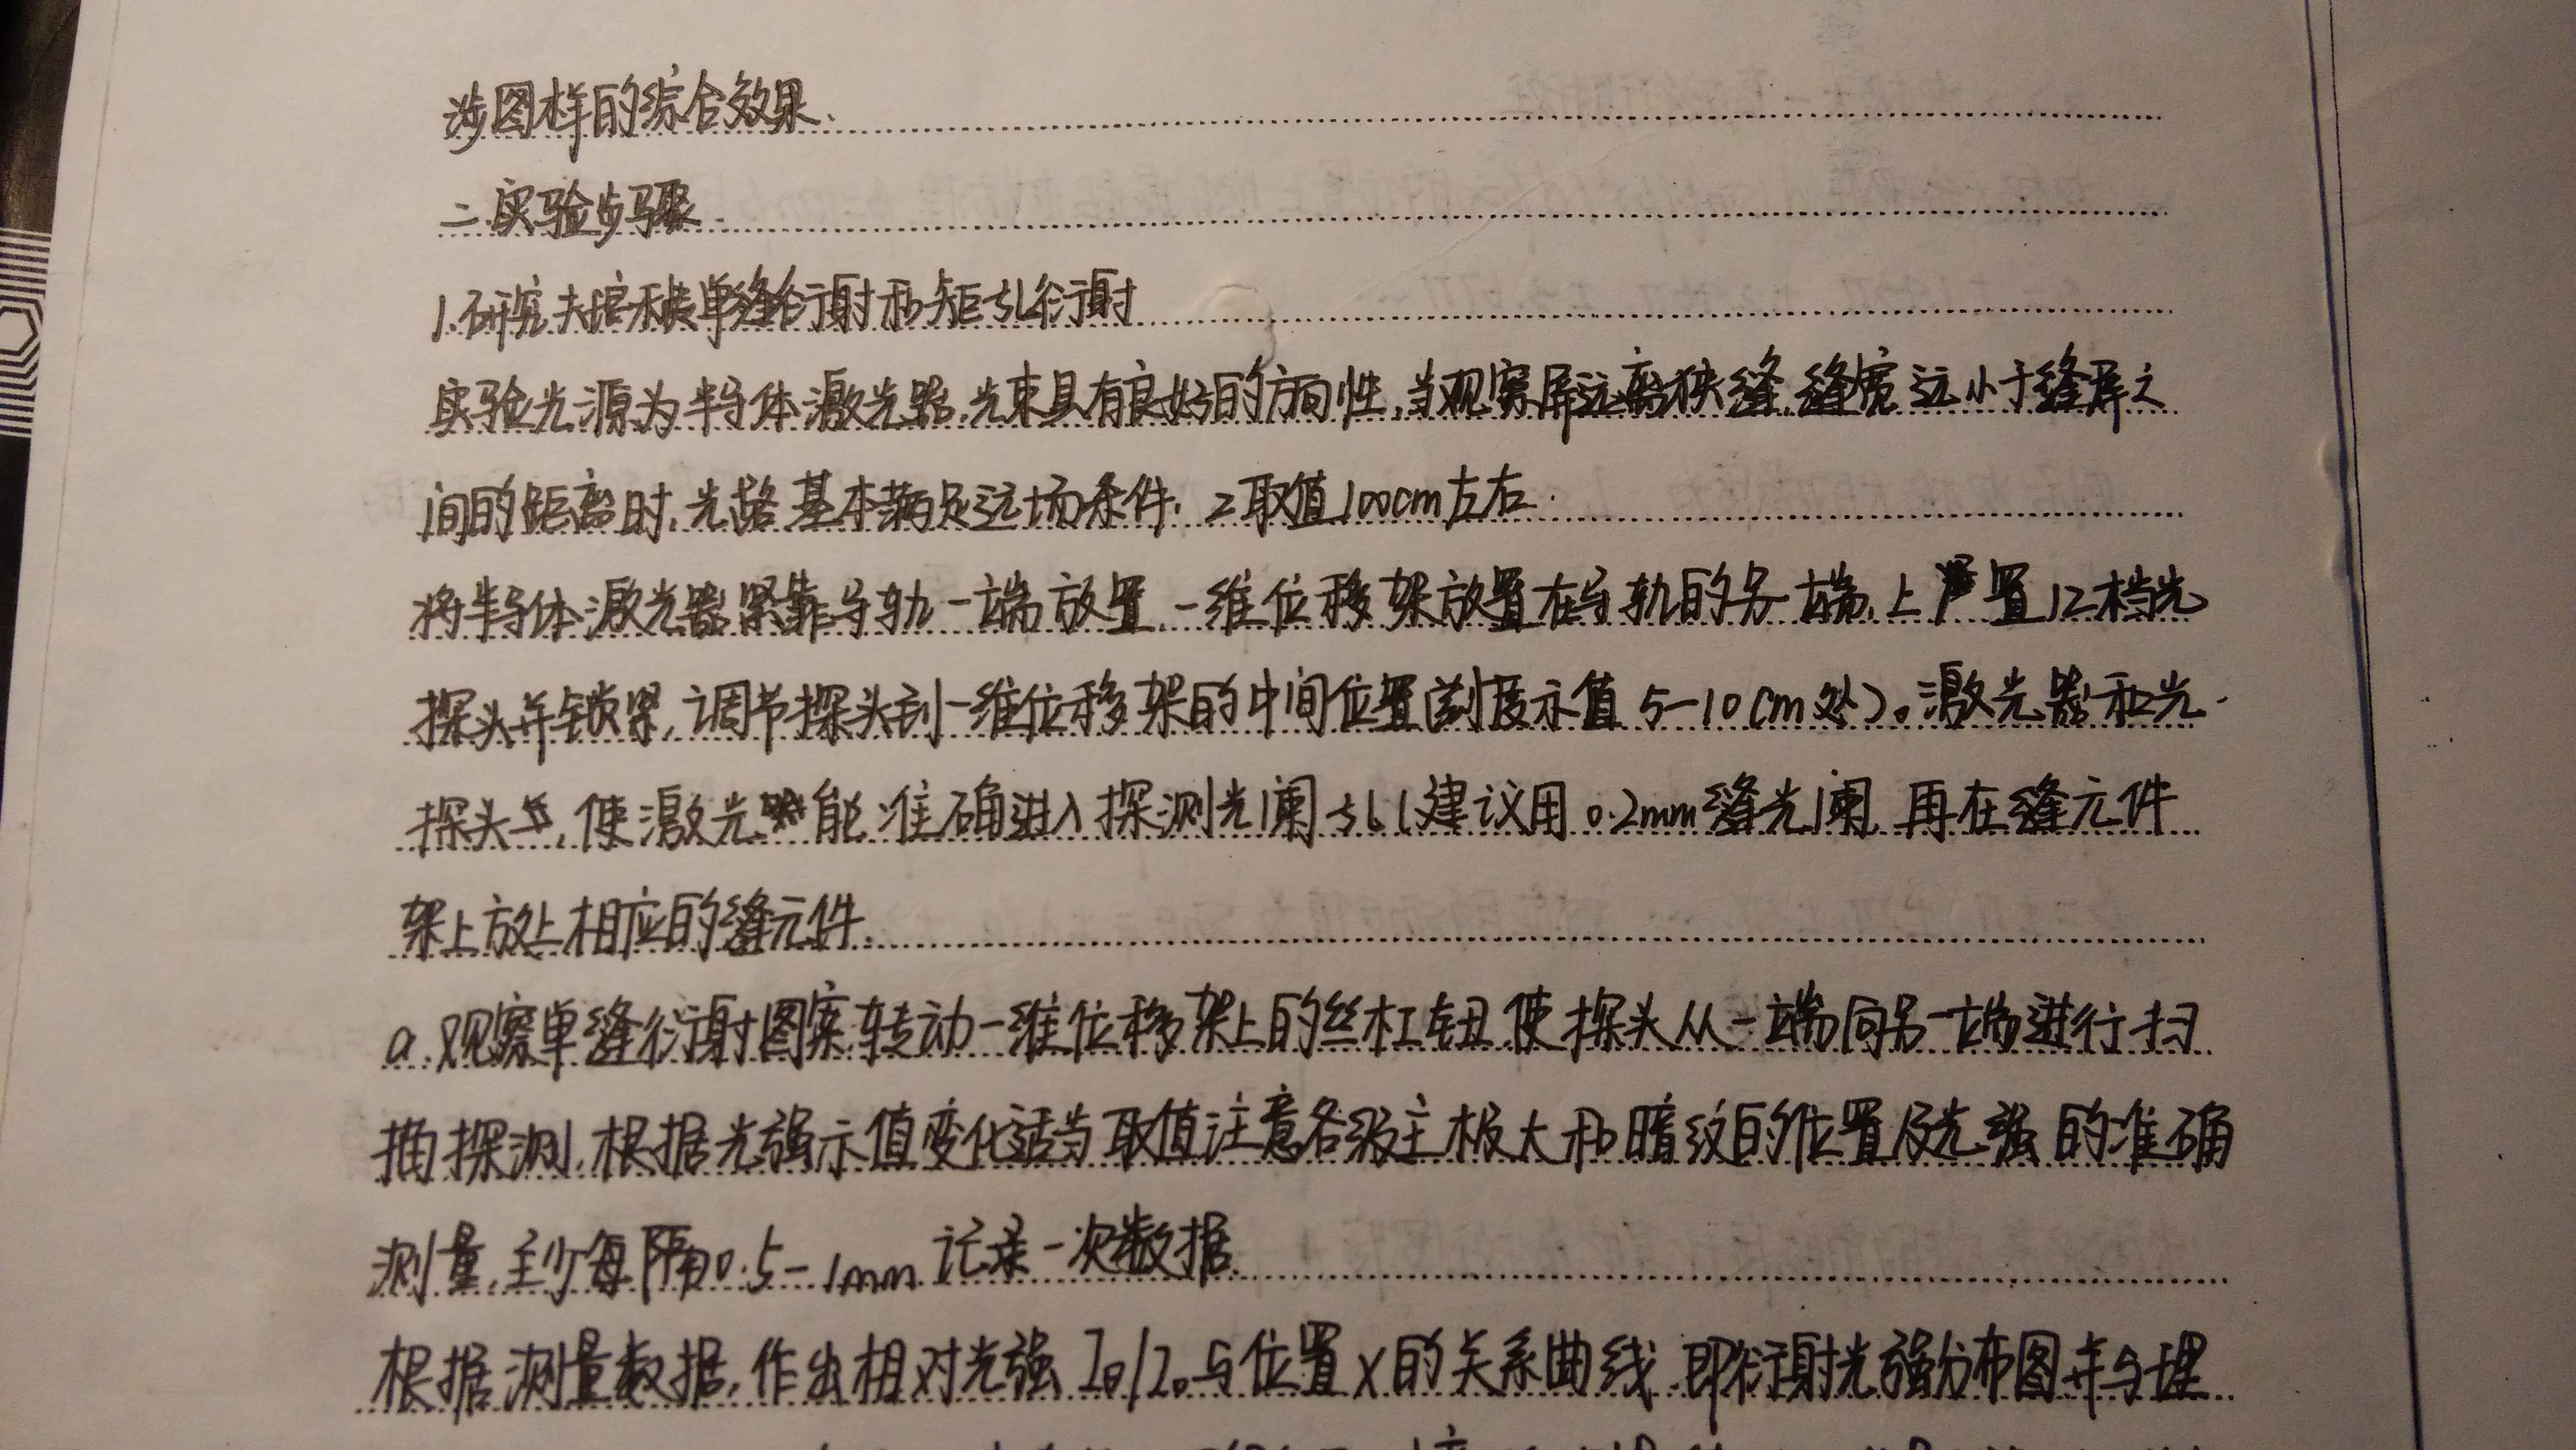 涉图样的综合效果.
二.实验步骤.
1.研究夫琅禾费单缝衍射和矩孔衍射
实验光源为半导体激光器,光束具有良好的方向性,当观察屏远离狭缝,缝宽远小于缝屏之
间的距离时,光路基本满足远场条件.Z取值100cm左右.
将半导体激光器紧靠导轨一端放置,一维位移架放置在导轨的另一端,上置12档光
探头并锁紧,调节探头到一维位移架的中间位置(刻度示值5-10cm处)。激光器和光
探头上,使激光能准确进入探测光阑孔(建议用0.2mm缝光阑,再在缝元件
架上放上相应的缝元件.
a.观察单缝衍射图案,转动一维位移架上的丝杠钮,使探头从一端向另一端进行扫
描探测,根据光强示值变化适当取值注意各级主极大和暗纹的位置及光强的准确
测量,至少每隔0.5-1mm记录一次数据.
根据测量数据,作出相对光强Iθ/I₀与位置X的关系曲线,即衍射光强分布图并与理